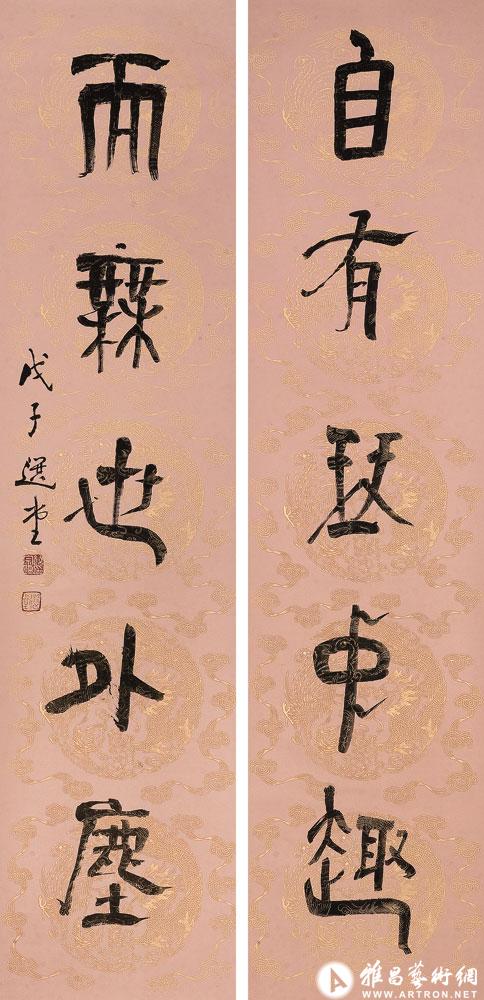 自有琴中趣
而無世外塵
戊子選堂
雅昌藝術網
WWW.ARTRON.NET